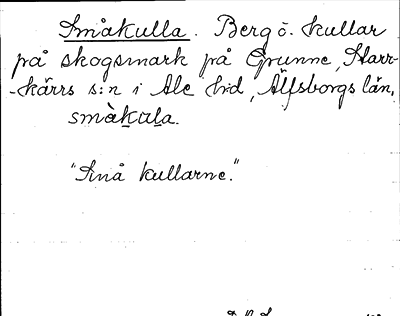 Småkulla. Berg o. kullar
på skogsmark på Grunne, Starr-
-kärrs s:n i Ale hd, Älfsborgs län.
smàkula.
"Små kullarne."